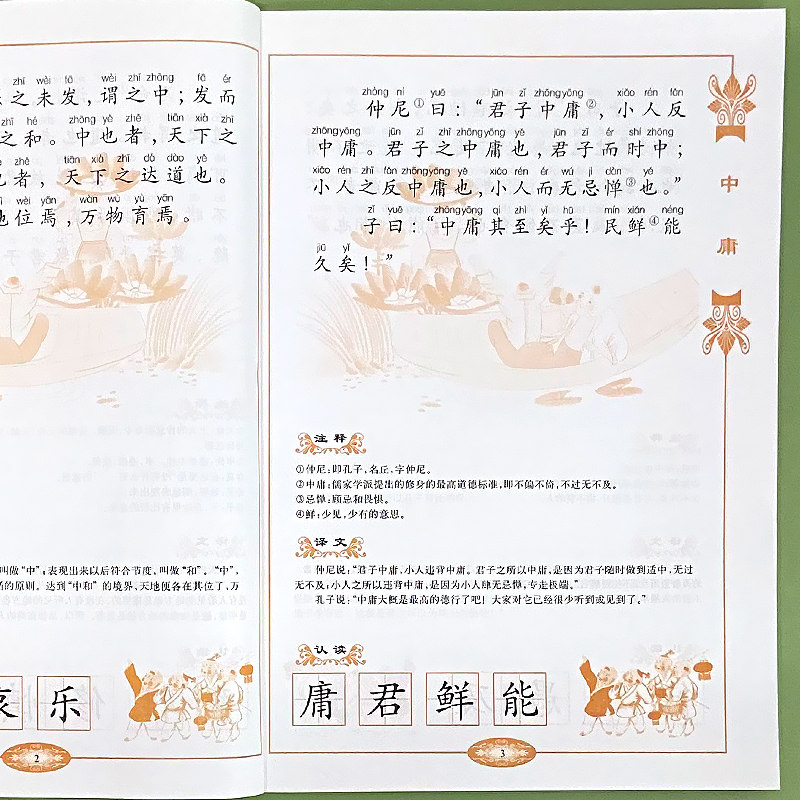 zhī wèi fā wèi zhī zhōng fā ér
之未发,谓之中;发而
zhī hé zhōng yě zhě tiān xià zhī
之和。中也者,天下之
zhě tiān xià zhī dá dào yě
也者,天下之达道也。
wèi yān wàn wù yù yān
地位焉,万物育焉。
叫做“中”;表现出来以后符合节度,叫做“和”。“中”,
的原则。达到“中和”的境界,天地便各在其位了,万
哀 乐
2
zhòng ní yuē jūn zǐ zhōng yōng xiǎo rén fǎn
仲尼①曰:“君子中庸②,小人反
zhōng yōng jūn zǐ zhī zhōng yōng yě jūn zǐ ér shí zhōng
中庸。君子之中庸也,君子而时中;
xiǎo rén zhī fǎn zhōng yōng yě xiǎo rén ér wú jì dàn yě
小人之反中庸也,小人而无忌惮③也。”
zǐ yuē zhōng yōng qí zhì yǐ hū mín xiǎn néng
子曰:“中庸其至矣乎!民鲜④能
jiǔ yǐ
久矣!”
中庸
注释
①仲尼:即孔子,名丘,字仲尼。
②中庸:儒家学派提出的修身的最高道德标准,即不偏不倚,不过无不及。
③忌惮:顾忌和畏惧。
④鲜:少见,少有的意思。
译文
仲尼说:“君子中庸,小人违背中庸。君子之所以中庸,是因为君子随时做到适中,无过
无不及;小人之所以违背中庸,是因为小人肆无忌惮,专走极端。”
孔子说:“中庸大概是最高的德行了吧!大家对它已经很少听到或见到了。”
认读
庸 君 鲜 能
3